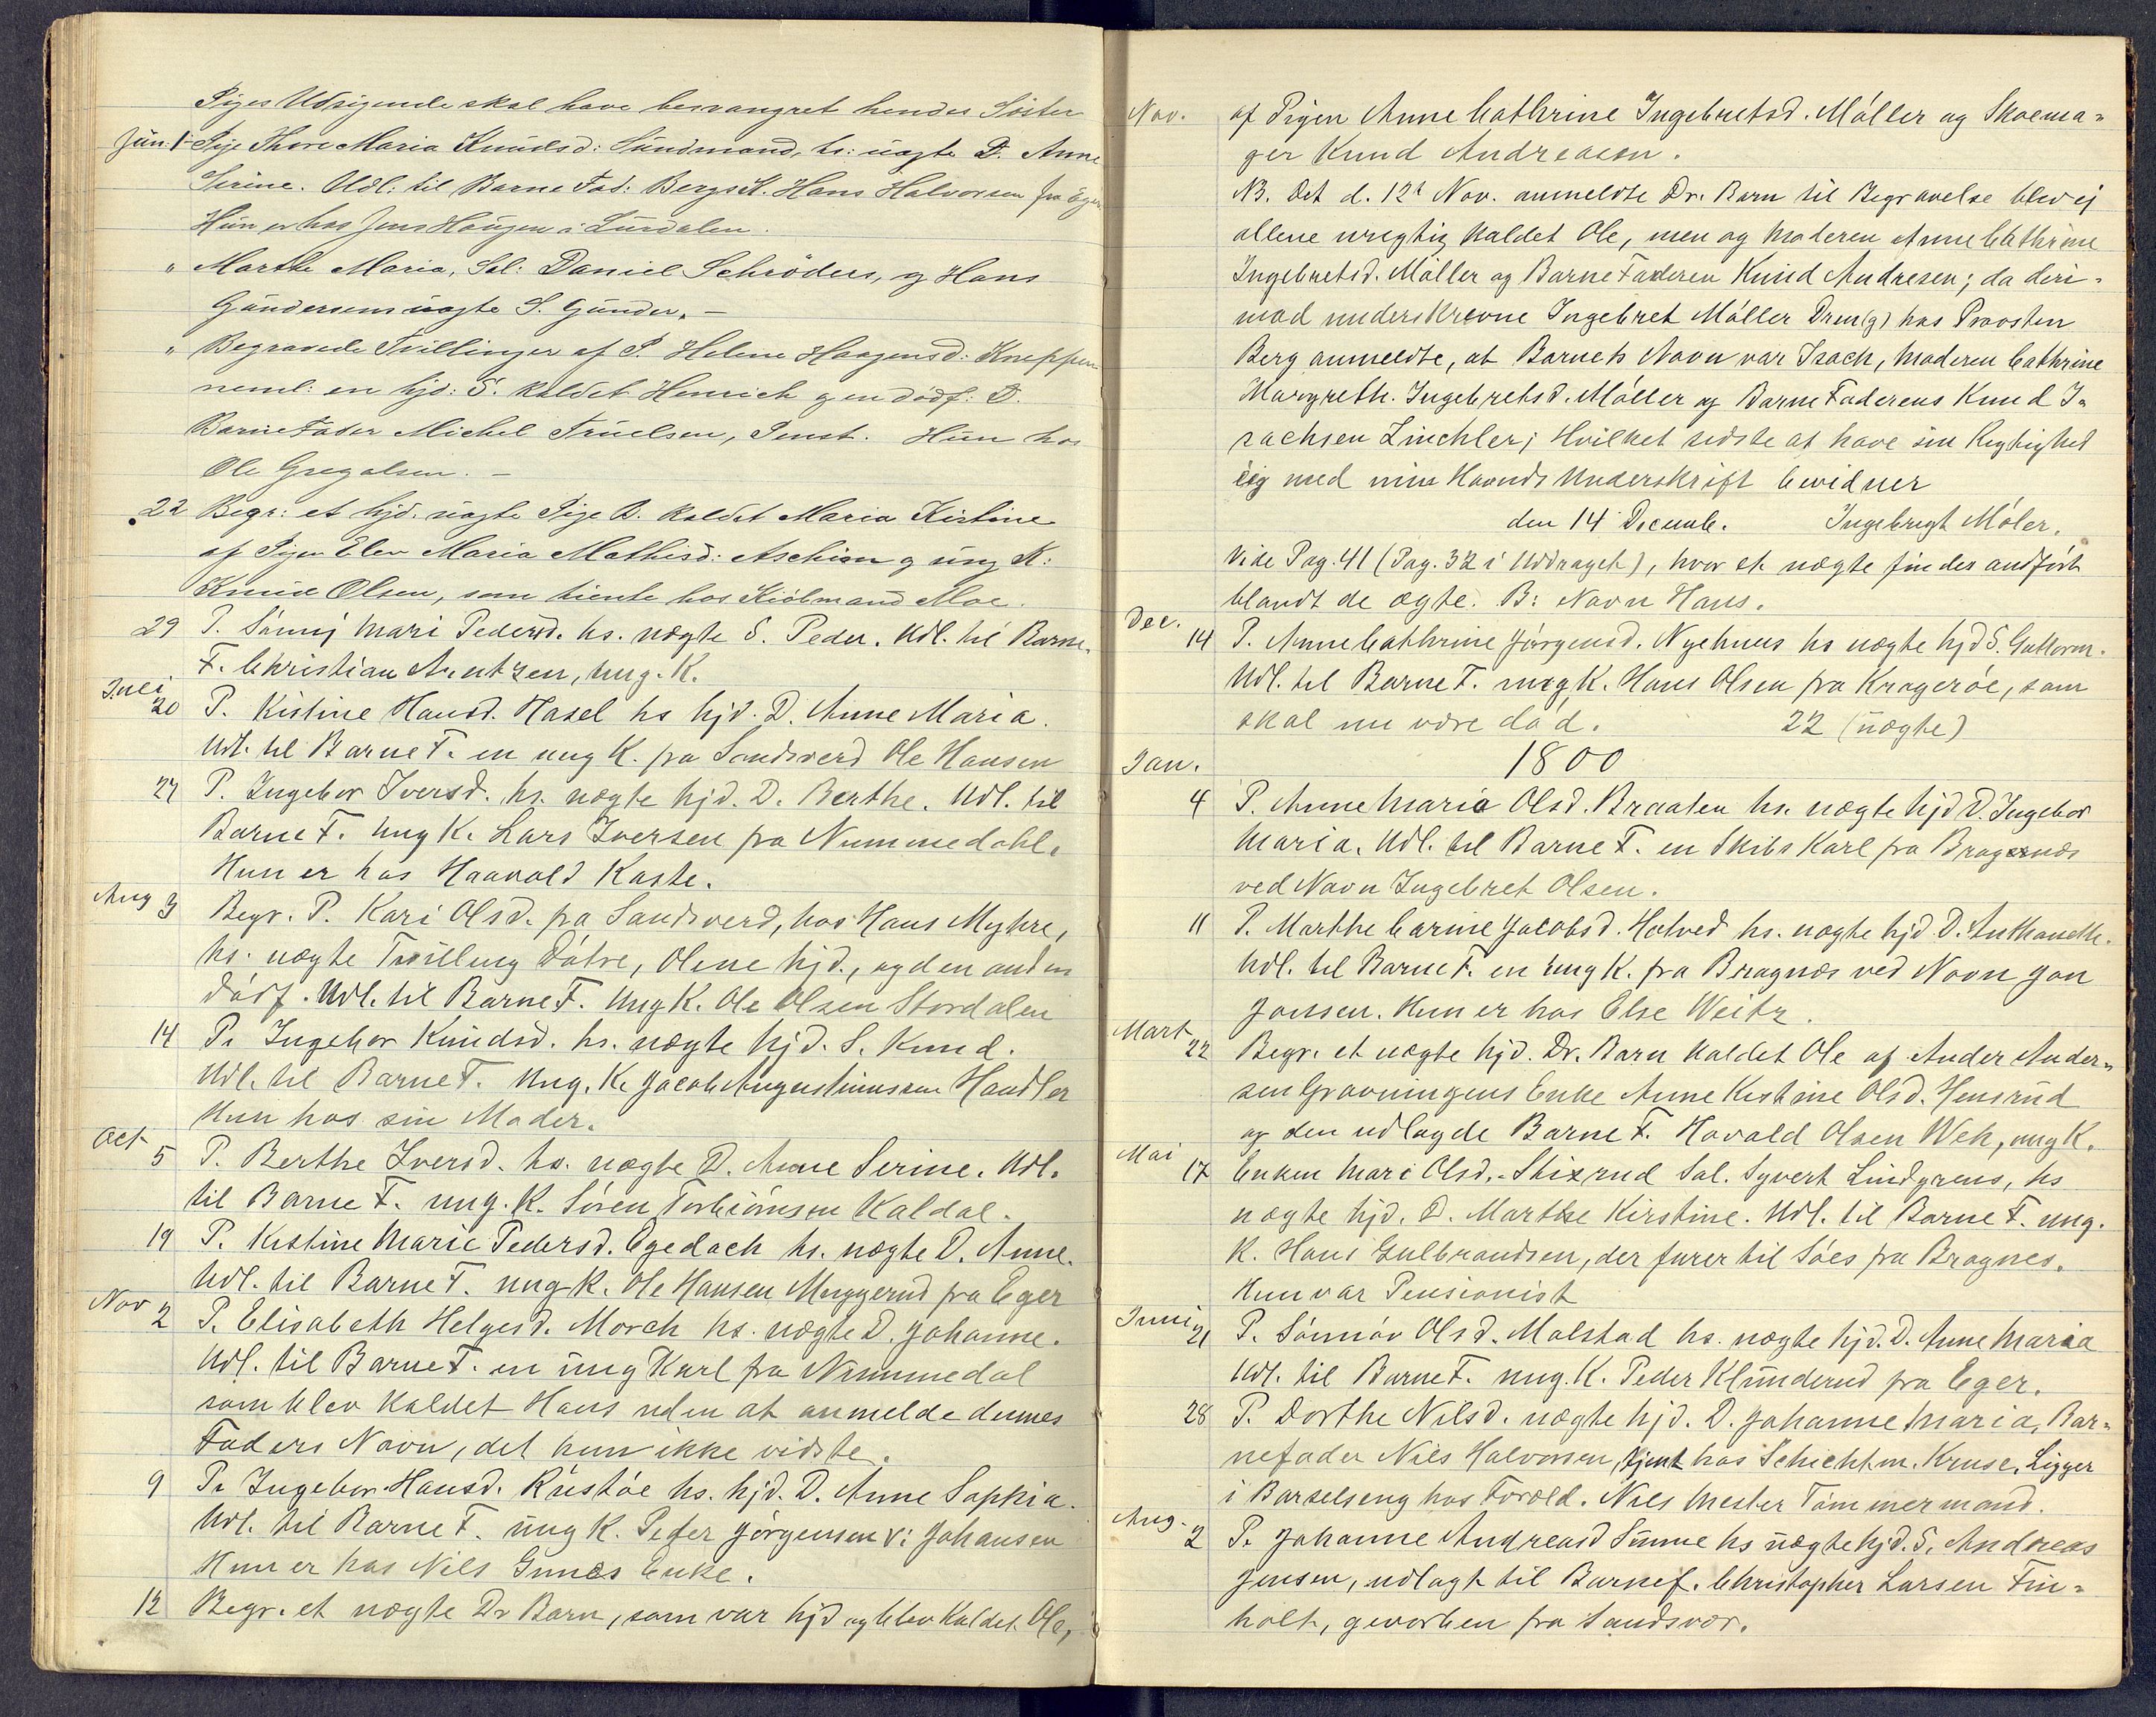 Piges Udsigende skal have besvangret hendes Söster
Jun. 1 Pige Thore Maria Knudsd: Sundmand, hs: uægte D. Anne
Serine. Udl: til Barne Fad: Bergs K. Hans Halvorsen fra Eger
Hun er hos Jens Haugen i Lurdalen.
" Marthe Maria, Sal: Daniel Schröders, og Hans
Gundersens uægte S. Gunder. —
" Begravede Tvillinger af P. Helene Haagensd: Kneppen
neml: en hjd: S. kaldet Henrich og en dödf: D.
Barne Fader Michel Truelsen, Senst. Hun hos
Ole Gregalsen. —
22 Begr: et hjd. uægte Pige B. kaldet Maria Kistine
af Pigen Elen Maria Mathisd: Aschim og ung K:
Knud Olsen, som tiente hos Kiöbmand Moe.
29 P. Sönnj Mari Pedersd. hs. uægte S. Peder. Udl. til Barne
F. Christian Arntzen, ung. K.
Juli
20 P. Kistine Hansd. Hasel hs hjd. D. Anne Maria.
Udl. til Barne F. en ung K. fra Sandsverd Ole Hansen
27 P. Ingebor Iversd. hs. uægte hjd. D. Berthe. Udl. til
Barne F. ung K. Lars Iversen fra Nummedahl.
Hun er hos Haavald Kaste.
Aug 3 Begr. P. Kari Olsd. fra Sandsverd, hos Hans Myhre,
hs. uægte Tvilling Dötre, Olene hjd., og den anden
dödf. Udl. til Barne F. Ung K. Ole Olsen Stordalen
14 P. Ingebor Knudsd. hs. uægte hjd. S. Knud.
Udl. til Barne F. Ung. K. Jacob Augustinussen Handler
Hun hos sin Moder.
Oct
5 P. Berthe Iversd. hs. uægte D. Anne Serine. Udl.
til Barne F. ung. K. Sören Torbiörnsen Kaldal.
19 P. Kistine Marie Pedersd. Egedach hs. uægte D. Anne.
Udl. til Barne F. ung K. Ole Hansen Muggerud fra Eger
Nov 2 P. Elisabeth Helgesd. Morch hs. uægte D. Johanne.
Udl. til Barne F. en ung Karl fra Nummedal
som blev kaldet Hans uden at anmelde dennes
Faders Navn, det hun ikke vidste.
9 P. Ingebor Hansd. Rustöe hs. hjd. D. Anne Sophia.
Udl. til Barne F. ung K. Peder Jörgensen v: Johansen
Hun er hos Nils Gunnes Enke.
12 Begr. et uægte Dr Barn, som var hjd og blev kaldet Ole,
Nov. af Pigen Anne Cathrine Ingebretsd. Möller og Skoema-
ger Knud Andreasen.
NB. Det d. 12t Nov. anmeldte Dr. Barn til Begravelse blev ej
allene urigtig kaldet Ole, men og Moderen Anne Cathrine
Ingebretsd. Möller og Barne Faderen Knud Andresen; da deri-
mod underskrevne Ingebret Möller Dreng) hos Provsten
Berg anmeldte, at Barnets Navn var Isach, Moderen Cathrine
Margreth. Ingebretsd. Möller og Barne Faderens Knud I-
sachsen Linchler; Hvilket sidste at have sin Rigtighed
jeg med min Haands Underskrift bevidner
den 14 Decemb. Ingebrigt Möler.
Vide Pag. 41 (Pag. 32 i Uddraget), hvor et uægte findes andfört
blandt de ægte. B: Navn Hans.
Dec.
14 P. Anne Cathrine Jörgensd. Nyehuus hs uægte hjd S. Guttorm.
Udl. til Barne F. ung K. Hans Olsen fra Krageröe, som
skal nu være död. 22 (uægte)
1800
Jan.
4 P. Anne Maria Olsd. Braaten hs. uægte hjd D. Ingebor
Maria. Udl. til Barne F. en Skibs Karl fra Bragernæs
ved Navn Ingebret Olsen.
11 P. Marthe Carine Jacobsd. Hotved hs. uægte hjd D. Anthonette.
Udl. til Barne F. en Ung K. fra Bragnæs ved Navn Jon
Jonssen. Hun er hos Else Weitz.
Mart
22 Begr. et uægte hjd. Dr. Barn kaldet Ole af Ander Ander-
sen Gravningens Enke Anne Kistine Olsd. Hensrud
og den udlagde Barne F. Havald Olsen Weh, ung K.
Mai
17 Enken Mari Olsd. Skixrud Sal. Syvert Lindgrens, hs
uægte hjd. D. Marthe Kirstine. Udl. til Barne F. ung.
K. Hans Gulbrandsen, der farer til Söes fra Bragnes.
Hun var Pensionist
Juni
21 P. Sönnöv Olsd. Molstad hs. uægte hjd. D. Anne Maria
Udl. til Barne F. ung. K. Peder Klunderud fra Eger.
28 P. Dorthe Nilsd. uægte hjd. D. Johanne Maria, Bar-
nefader Nils Halvorsen, tjent hos Schichtm. Kruse. Ligger
i Barselseng hos Foræld. Nils Mester Tömmermand.
Aug.
2 P. Johanne Andreasd Sunne hs uægte hjd. S. Andreas
Jensen, udlagt til Barnef. Christopher Larsen Fin-
holt, geworben fra Sandsvær.